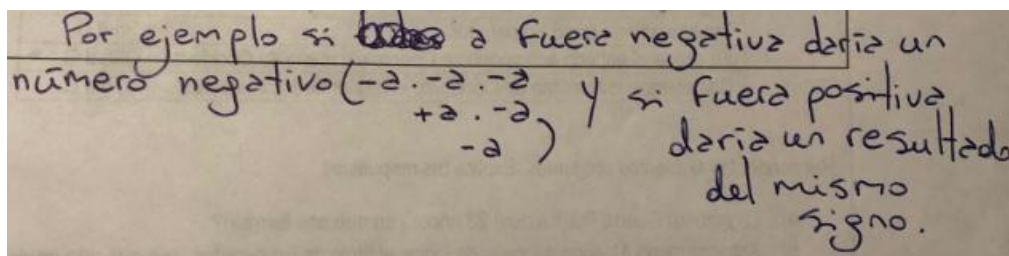 Por ejemplo si a fuera negativa daría un
número negativo (-a . -a . -a y si fuera positiva
+a . -a daria un resultado
-a) del mismo
signo.